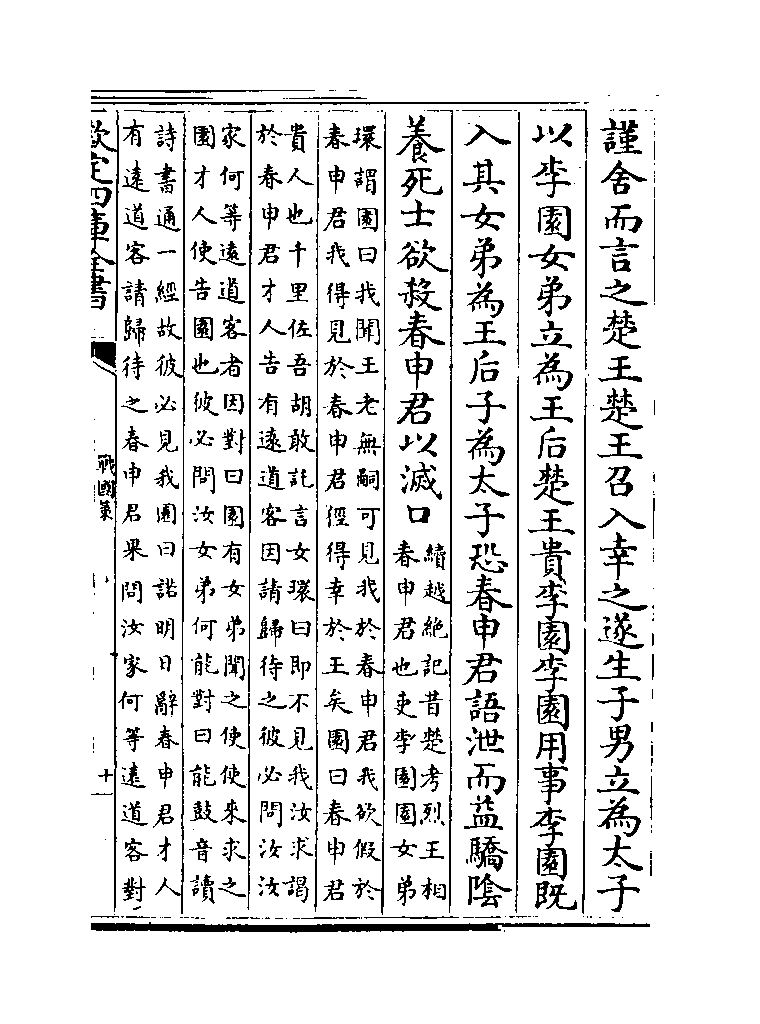 謹舍而言之楚王楚王召入幸之遂生子男立為太子
以李園女弟立為王后楚王貴李園李園用事李園既
入其女弟為王后子為太子恐春申君語泄而益驕陰
養死士欲殺春申君以滅口
續越絶記昔楚考烈王相
春申君也吏李園園女弟
環謂園曰我聞王老無嗣可見我於春申君我欲假於
春申君我得見於春申君徑得幸於王矣園曰春申君
貴人也千里佐吾胡敢託言女環曰即不見我汝求謁
於春申君才人告有遠道客因請歸待之彼必問汝汝
家何等遠道客者因對曰園有女弟聞之使使來求之
園才人使告園也彼必問汝女弟何能對曰能鼓音讀
詩書通一經故彼必見我園曰諾明日辭春申君才人
有遠道客請歸待之春申君果問汝家何等遠道客對
欽定四庫全書
戰國策
十